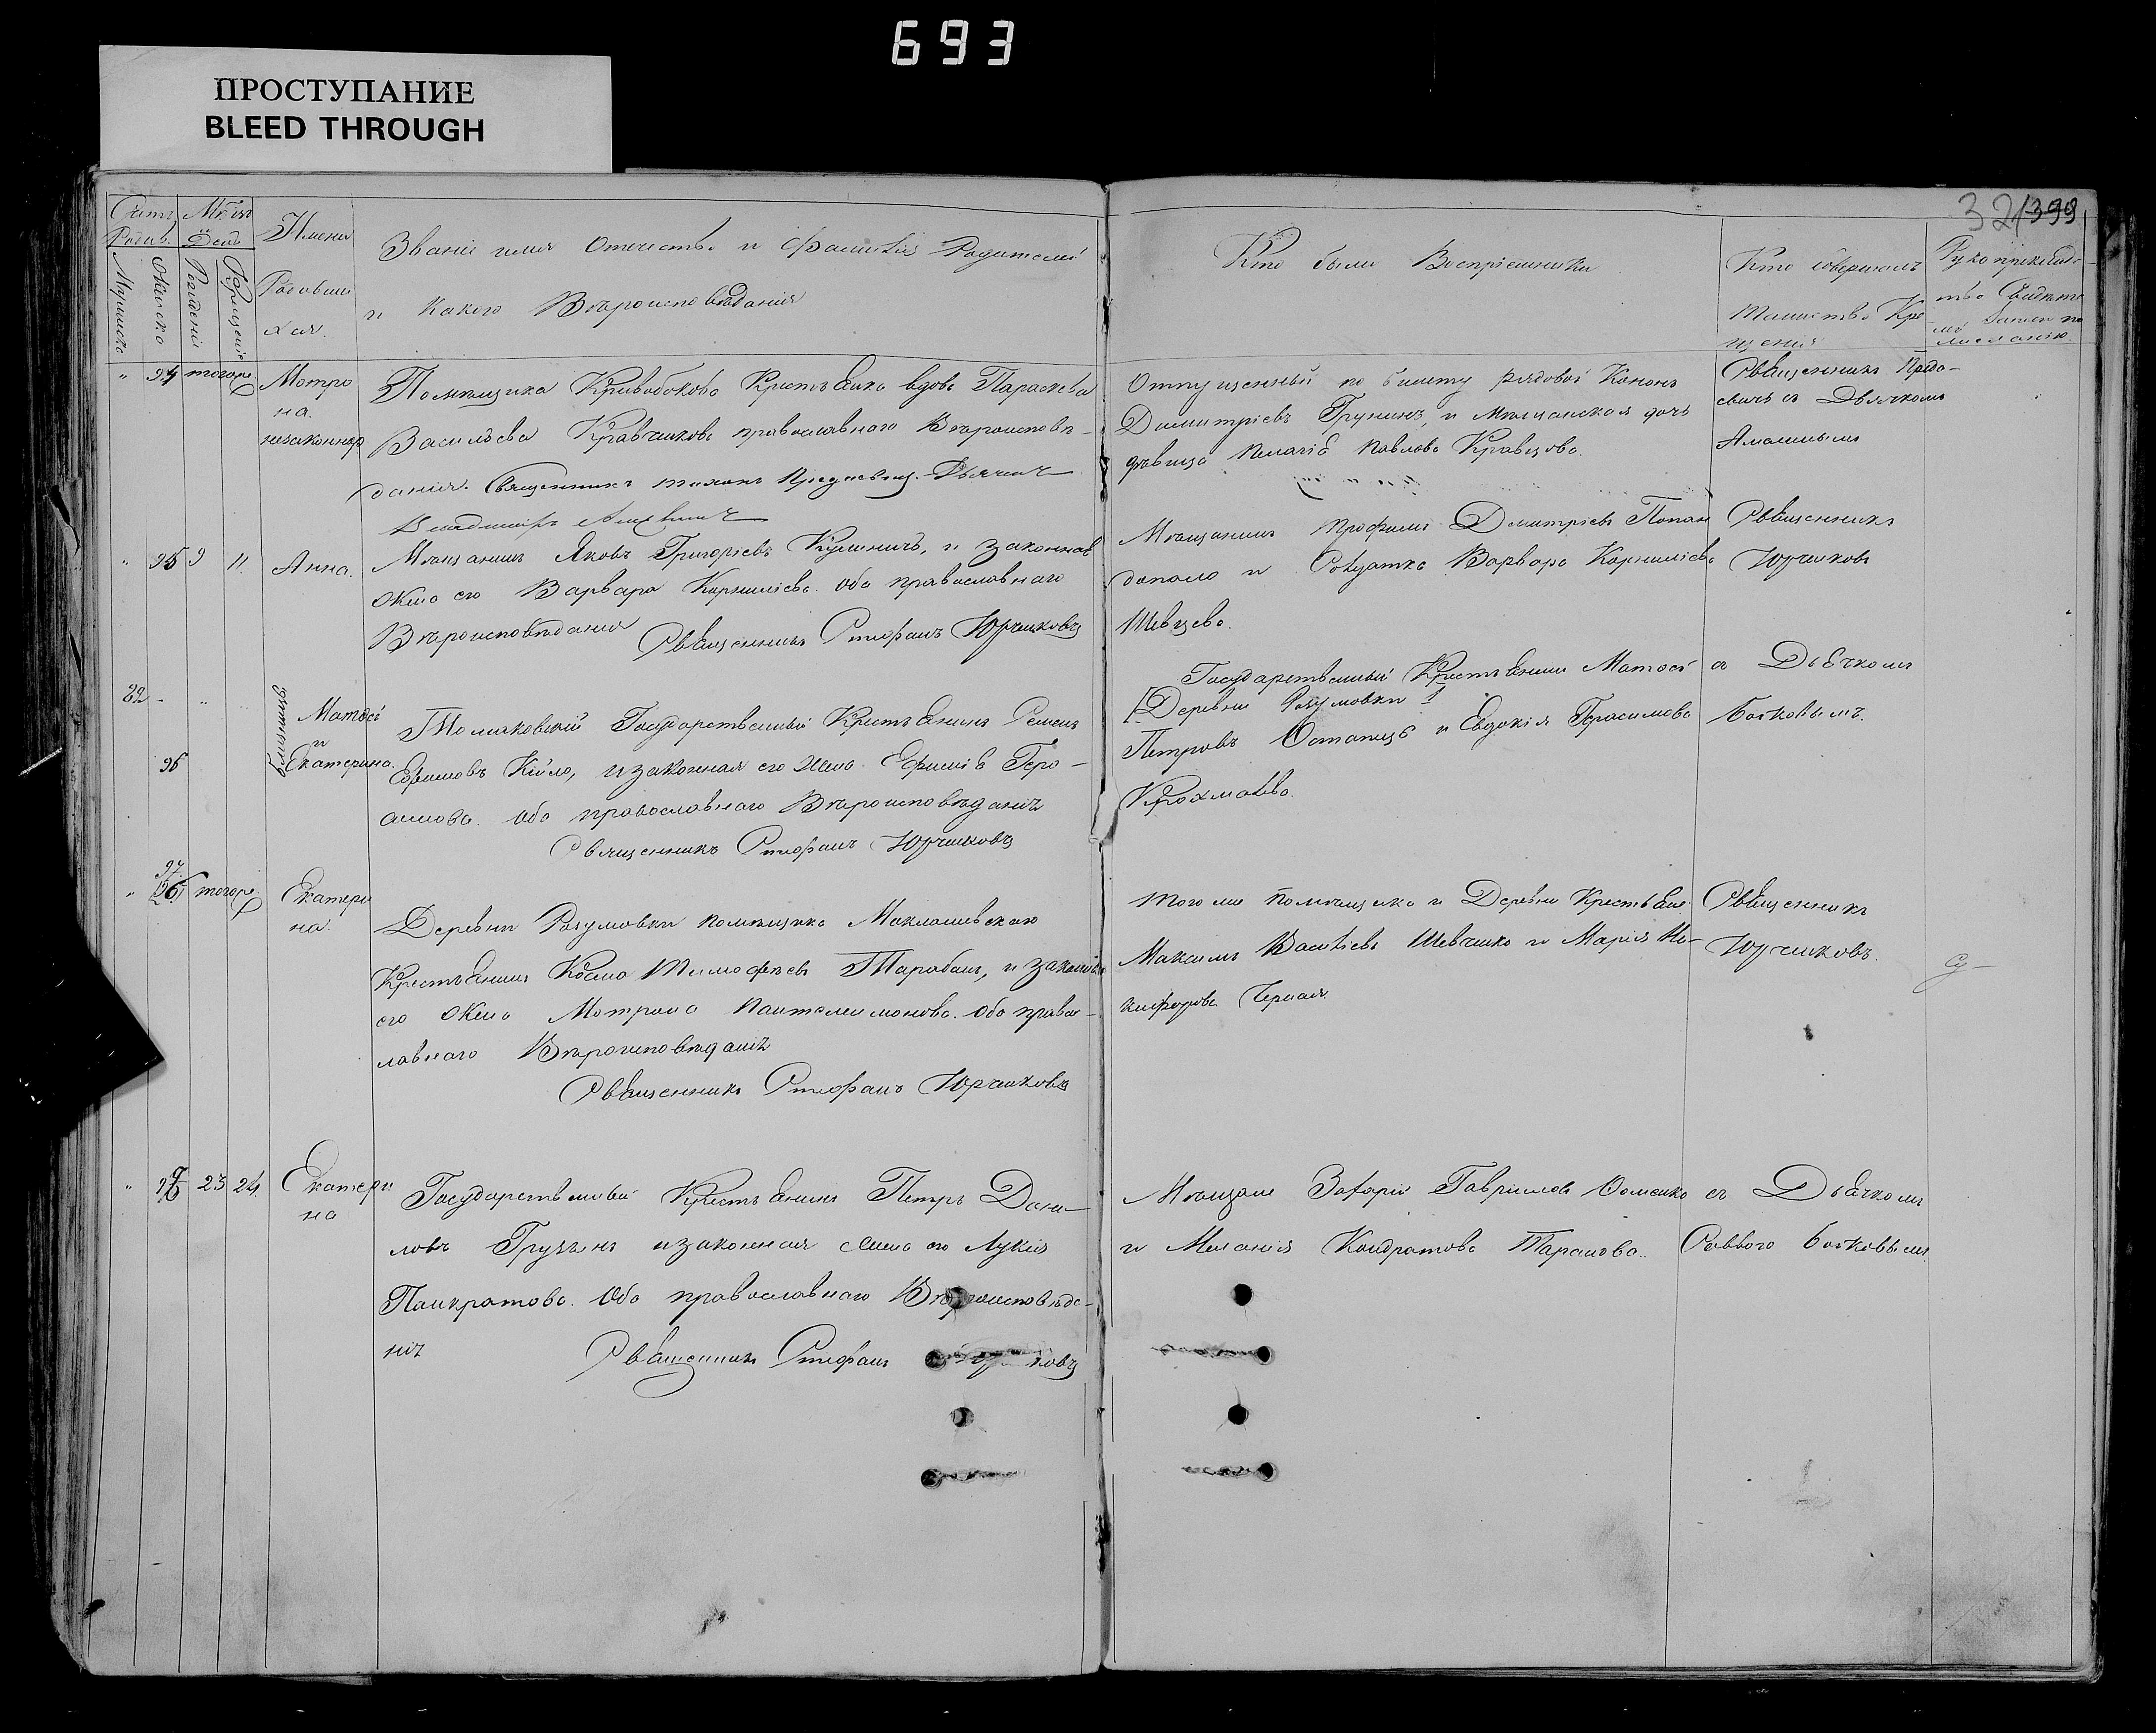 693
ПРОСТУПАНИЕ
BLEED THROUGH
32
399
Счетъ Родив.
Мѣсяцъ День
Имена Родившихся.
Мужеска
Женско
Рожденія
Крещенія
Званіе имя Отчество и Фамилія Родителей
и Какого Вѣроисповѣданія
Кто были Воспріемники
Кто совершалъ
Таинство Кре
щенія
Рукоприкладс
тво Свидѣте
лей записи по
желанію.
" 94 тогоже
Мотро
на.
незаконнор
Помѣщика Кривобокова Крестьянка вдова Параскева
Васильева Кравчикова православнаго Вѣроисповѣ-
данія. Священникъ Дьячекъ
Владимиръ
Отпущенный по билету рядовой Кононъ
Димитріевъ Грунинъ, и мѣщанская дочь
дѣвица Пелагія Павлова Кравцова.
Священникъ
съ Дьячкомъ
" 95 9 11
Анна.
Мѣщанинъ Яковъ Григоріевъ Кулиничъ, и законная
жена его Варвара Корниліева. оба православнаго
Вѣроисповѣданія Священникъ Стефанъ Юрчиковъ
Мѣщанинъ Трофимъ Димитріевъ Попан
дополо и Солдатка Варвара Корниліева
Шевцова.
Священникъ
Юрчиковъ
82 - "
96
близнята
Матвей
и
Екатерина.
Томаковский Государственный Крестьянинъ Семенъ
Ефимовъ Кійло, и законная его жена Ефимія Гера-
симова. оба православнаго Вѣроисповѣданія
Священникъ Стефанъ Юрчиковъ
Государственный Крестьянинъ Матвей
[Деревни Разумовки]
Петровъ Остапецъ и Евдокія Герасимова
Крохмалева.
съ Дьячкомъ
Бойковымъ.
" 97 тогоже
Екатери
на.
Деревни Разумовки помѣщика Миклашевского
Крестьянинъ Косма Тимофеевъ Тарабанъ, и законная
его Жена Мотрона Пантелеимонова. оба правос-
лавнаго Вѣроисповѣданія
Священникъ Стефанъ Юрчиковъ
того же помѣщика и Деревни Крестьяне
Максимъ Васильевъ Шевченко и Марія Ни-
кифорова Черная.
Священникъ
Юрчиковъ.
" 98 23 24
Екатери
на
Государственный Крестьянинъ Петръ Дани-
ловъ Грузинъ и законная жена его Лукія
Панкратова. Оба православнаго Вѣроисповѣда-
нія Священникъ Стефанъ Юрчиковъ
Мѣщане Захарій Гавриловъ Фоменко
и Меланія Кондратова Таранова.
съ Дьячкомъ
Саввою Бойковымъ